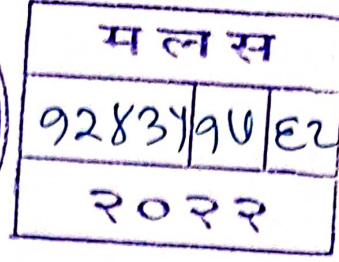 म ल स
१२४३५ १७ ६२
२०२२